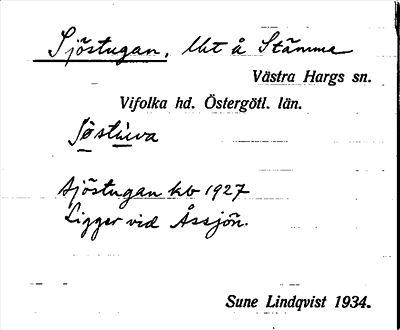 Sjöstugan, lht å Stämma
Västra Hargs sn.
Vifolka hd. Östergötl. län.
Sjöstugan kb 1927
Ligger vid Åssjön.
Sune Lindqvist 1934.